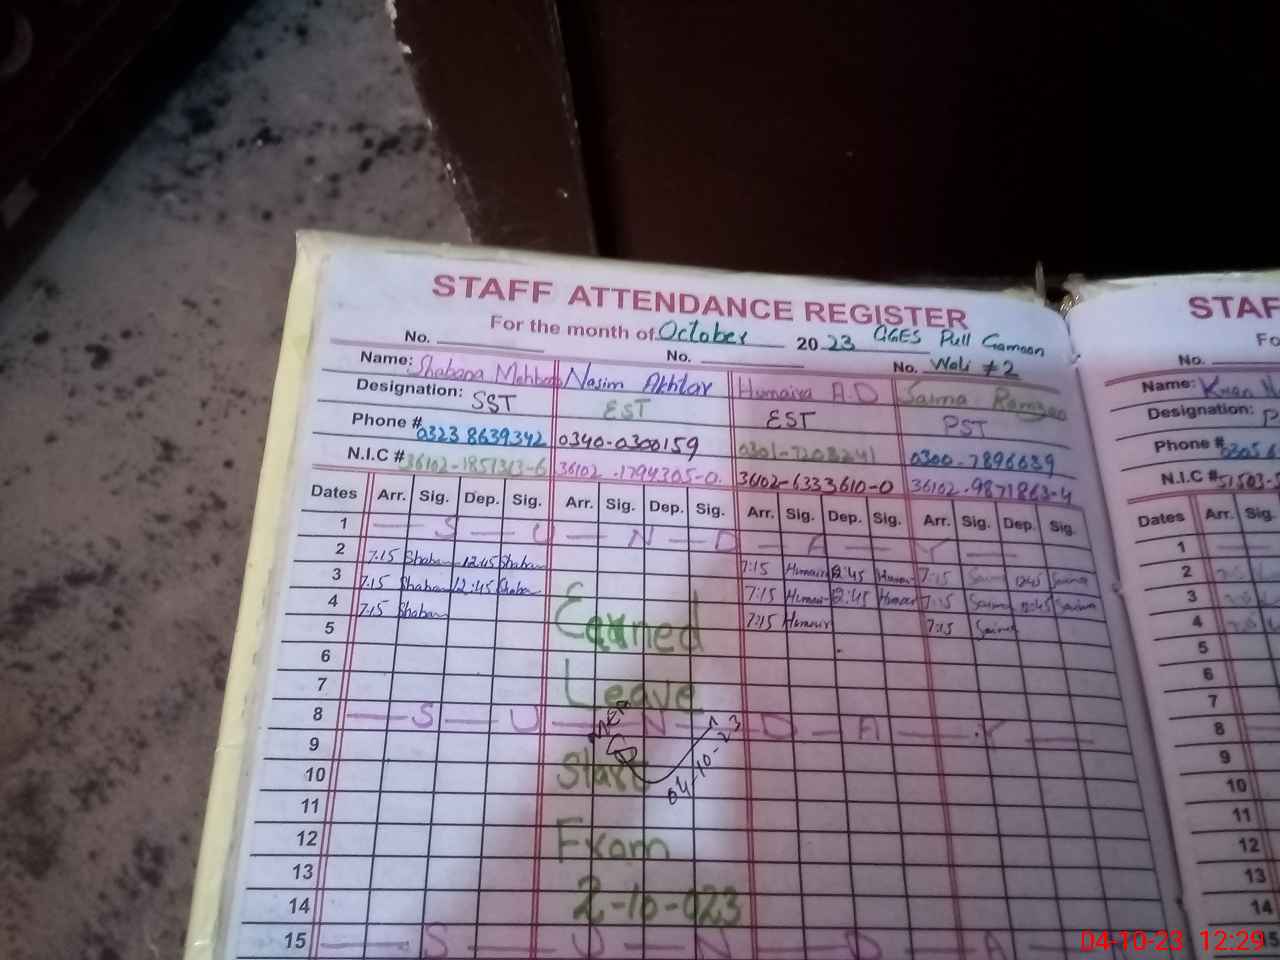 STAFF ATTENDANCE REGISTER
For the month of October 2023 GGES Pull Gamoon
No. No. No. Wali # 2
Name: Shabana Mehboob Nasim Akhtar Humaira A.D Saima Ramzan
Designation: SST EST EST PST
Phone # 0323 8639342 0340-0300159 0301-7208241 0300-7896639
N.I.C # 36102-1851313-6 36102-1794305-0 36102-6333610-0 36102-9871863-4
Dates Arr. Sig. Dep. Sig. Arr. Sig. Dep. Sig. Arr. Sig. Dep. Sig. Arr. Sig. Dep. Sig.
1 S U N D A Y
2 7:15 Shaban 12:45 Shaban 7:15 Humaira 12:45 Humair 7:15 Saima 12:45 Saima
3 7:15 Shaban 12:45 Shaban 7:15 Humair 12:45 Humair 7:15 Saima 12:45 Saima
4 7:15 Shaban Earned 7:15 Humair 7:15 Saima
5
6
7 Leave
8 S U N D A Y
9 MEA
10 Start 04-10-23
11
12 Exam
13
14 2-10-023
15 S U N D A
STAF
Fo
No.
Name:
Designation: P
Phone # 0305
N.I.C # 51503-5
Dates Arr. Sig
1
2
3
4
5
6
7
8
9
10
11
12
13
14
15
04-10-23 12:29